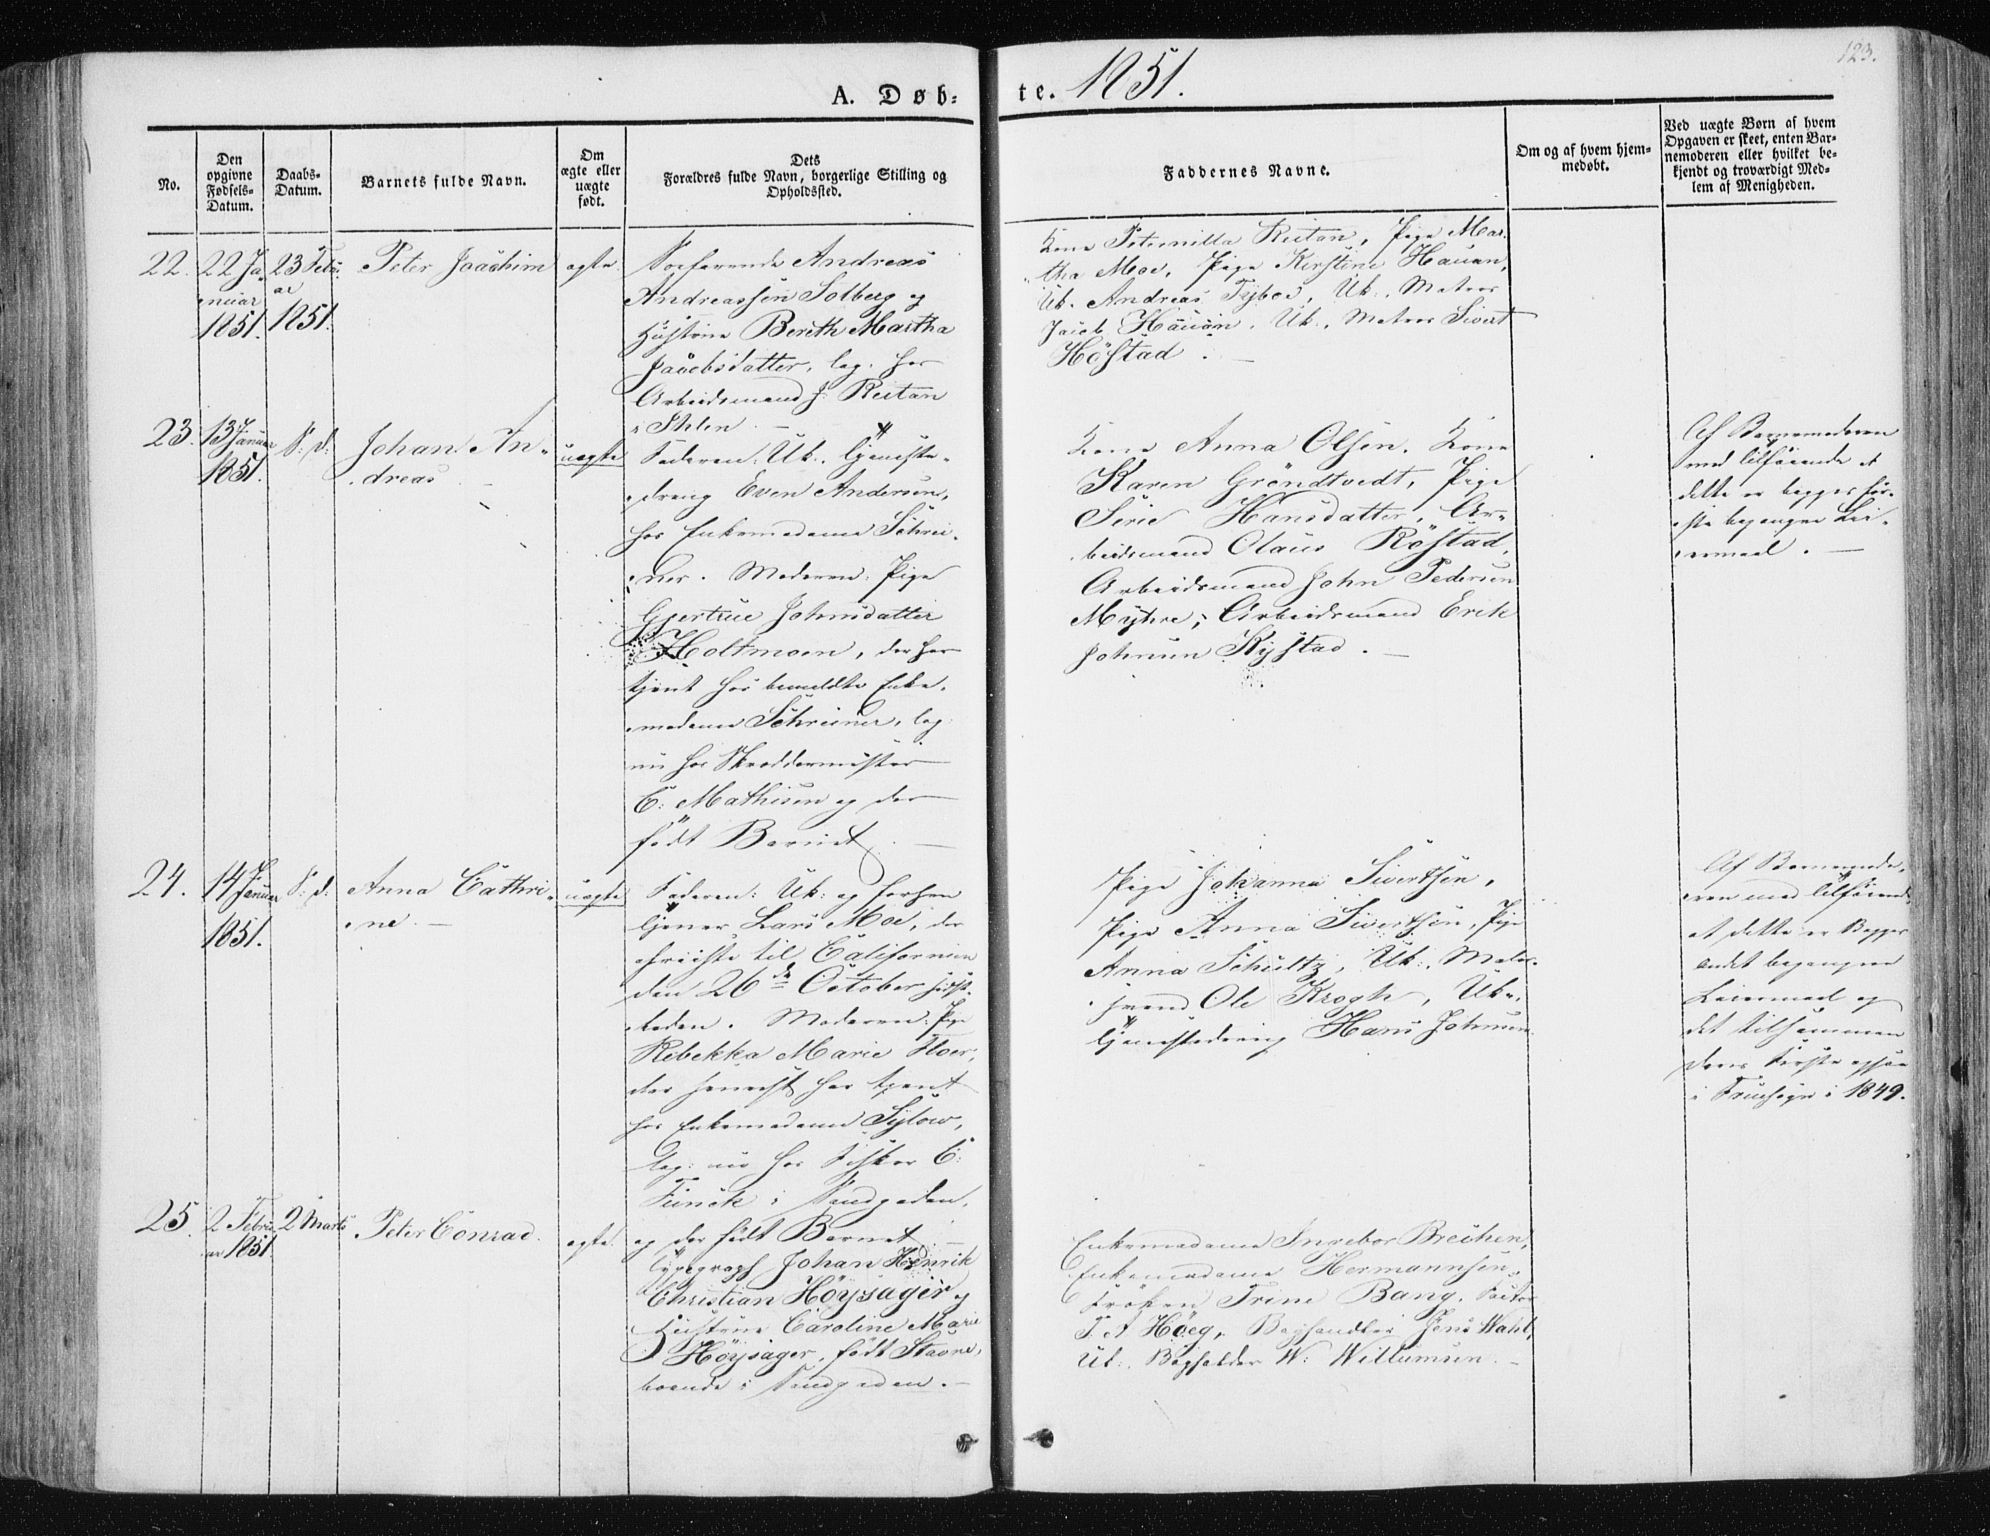 123.
A. Døb-te. 1851.
No.
Den opgivne Fødsels-Datum.
Daabs-Datum.
Barnets fulde Navn.
Om ægte eller uægte født.
Dets Forældres fulde Navn, borgerlige Stilling og Opholdssted.
Faddernes Navne.
Om og af hvem hjem-medøbt.
Ved uægte Børn af hvem Opgaven er skeet, enten Bar-nemoderen eller hvilket be-kjendt og troværdigt Med-lem af Menigheden.
22.
22 Ja
nuar
1851.
23 Febr.
ar
1851.
Peter Joachim
ægte.
Søefarende Andreas
Andreassen Solberg og
Hustrue Bereth Martha
Jacobsdatter, log. hos
Arbeidsmand J. Reitan
i Ihlen
Kone Peternilla Reitan, Pige Mar-
tha Moe, Pige Kirstine Hauan,
Uk. Andreas Tyboe, Uk. Matros
Jacob Hauan, Uk. Matros Sivert
Høstad.
23.
13 Januar
1851.
S: d:
Johan An-
dreas
uægte
Faderen: Uk. Tjeneste-
dreng Even Andersen,
hos Enkemadame Schrei-
ner. Moderen: Pige
Gjertrue Johnsdatter
Holtmoen, der har
tjent hos bemeldte Enke-
madame Schreiner, log.
nu hos Skræddermester
C: Mathisen og der
født Barnet.
Kone Anna Olsen, Kone
Karen Gröndtvedt, Pige
Sirie Hansdatter, Ar-
beidsmand Olaus Røstad,
Arbeidsmand John Pedersen
Myhre, Arbeidsmand Erik
Johnsen Kystad.
Af Barnemoderen
med Tilføiende at
dette er begges før-
ste begangne Lei-
ermaal.
24.
14 Januar
1851.
S: d:
Anna Cathri-
ne.
uægte
Faderen: Uk: og forhen
Tjener Lars Moe, der
afreiste til Californien
den 26de October sidst-
leden. Moderen: Pige
Rebekka Marie Moer,
der senest har tjent
hos Enkemadame Sylow,
log: nu hos Fisker C:
Funck i Sandgaden,
og der født Barnet.
Pige Johanna Sivertsen,
Pige Anna Sivertsen, Pige
Anna Schultz, Uk.
Ole Krogh, Uk.
Tjenestedreng Hans Johnsen
Af Barnemode-
ren med Tilføiende
at dette er Begges
andet begangne
Leiermaal og
det tilsammen
deres første
i 1849.
25
2 Febru
ar 1851.
2 Marts
Peter Conrad.
ægte.
Typograph Johan Henrik
Christian Höysager og
Hustrue Caroline Marie
Höysager, født Stavne,
boende i Sandgaden.
Enkemadame Ingebor Breihen,
Enkemadame Hermannsen,
Frøken Trine Bang, Factor
T. A Höeg, Boghandler Jens Wahl,
Uk. Bogholder W: Willumsen.